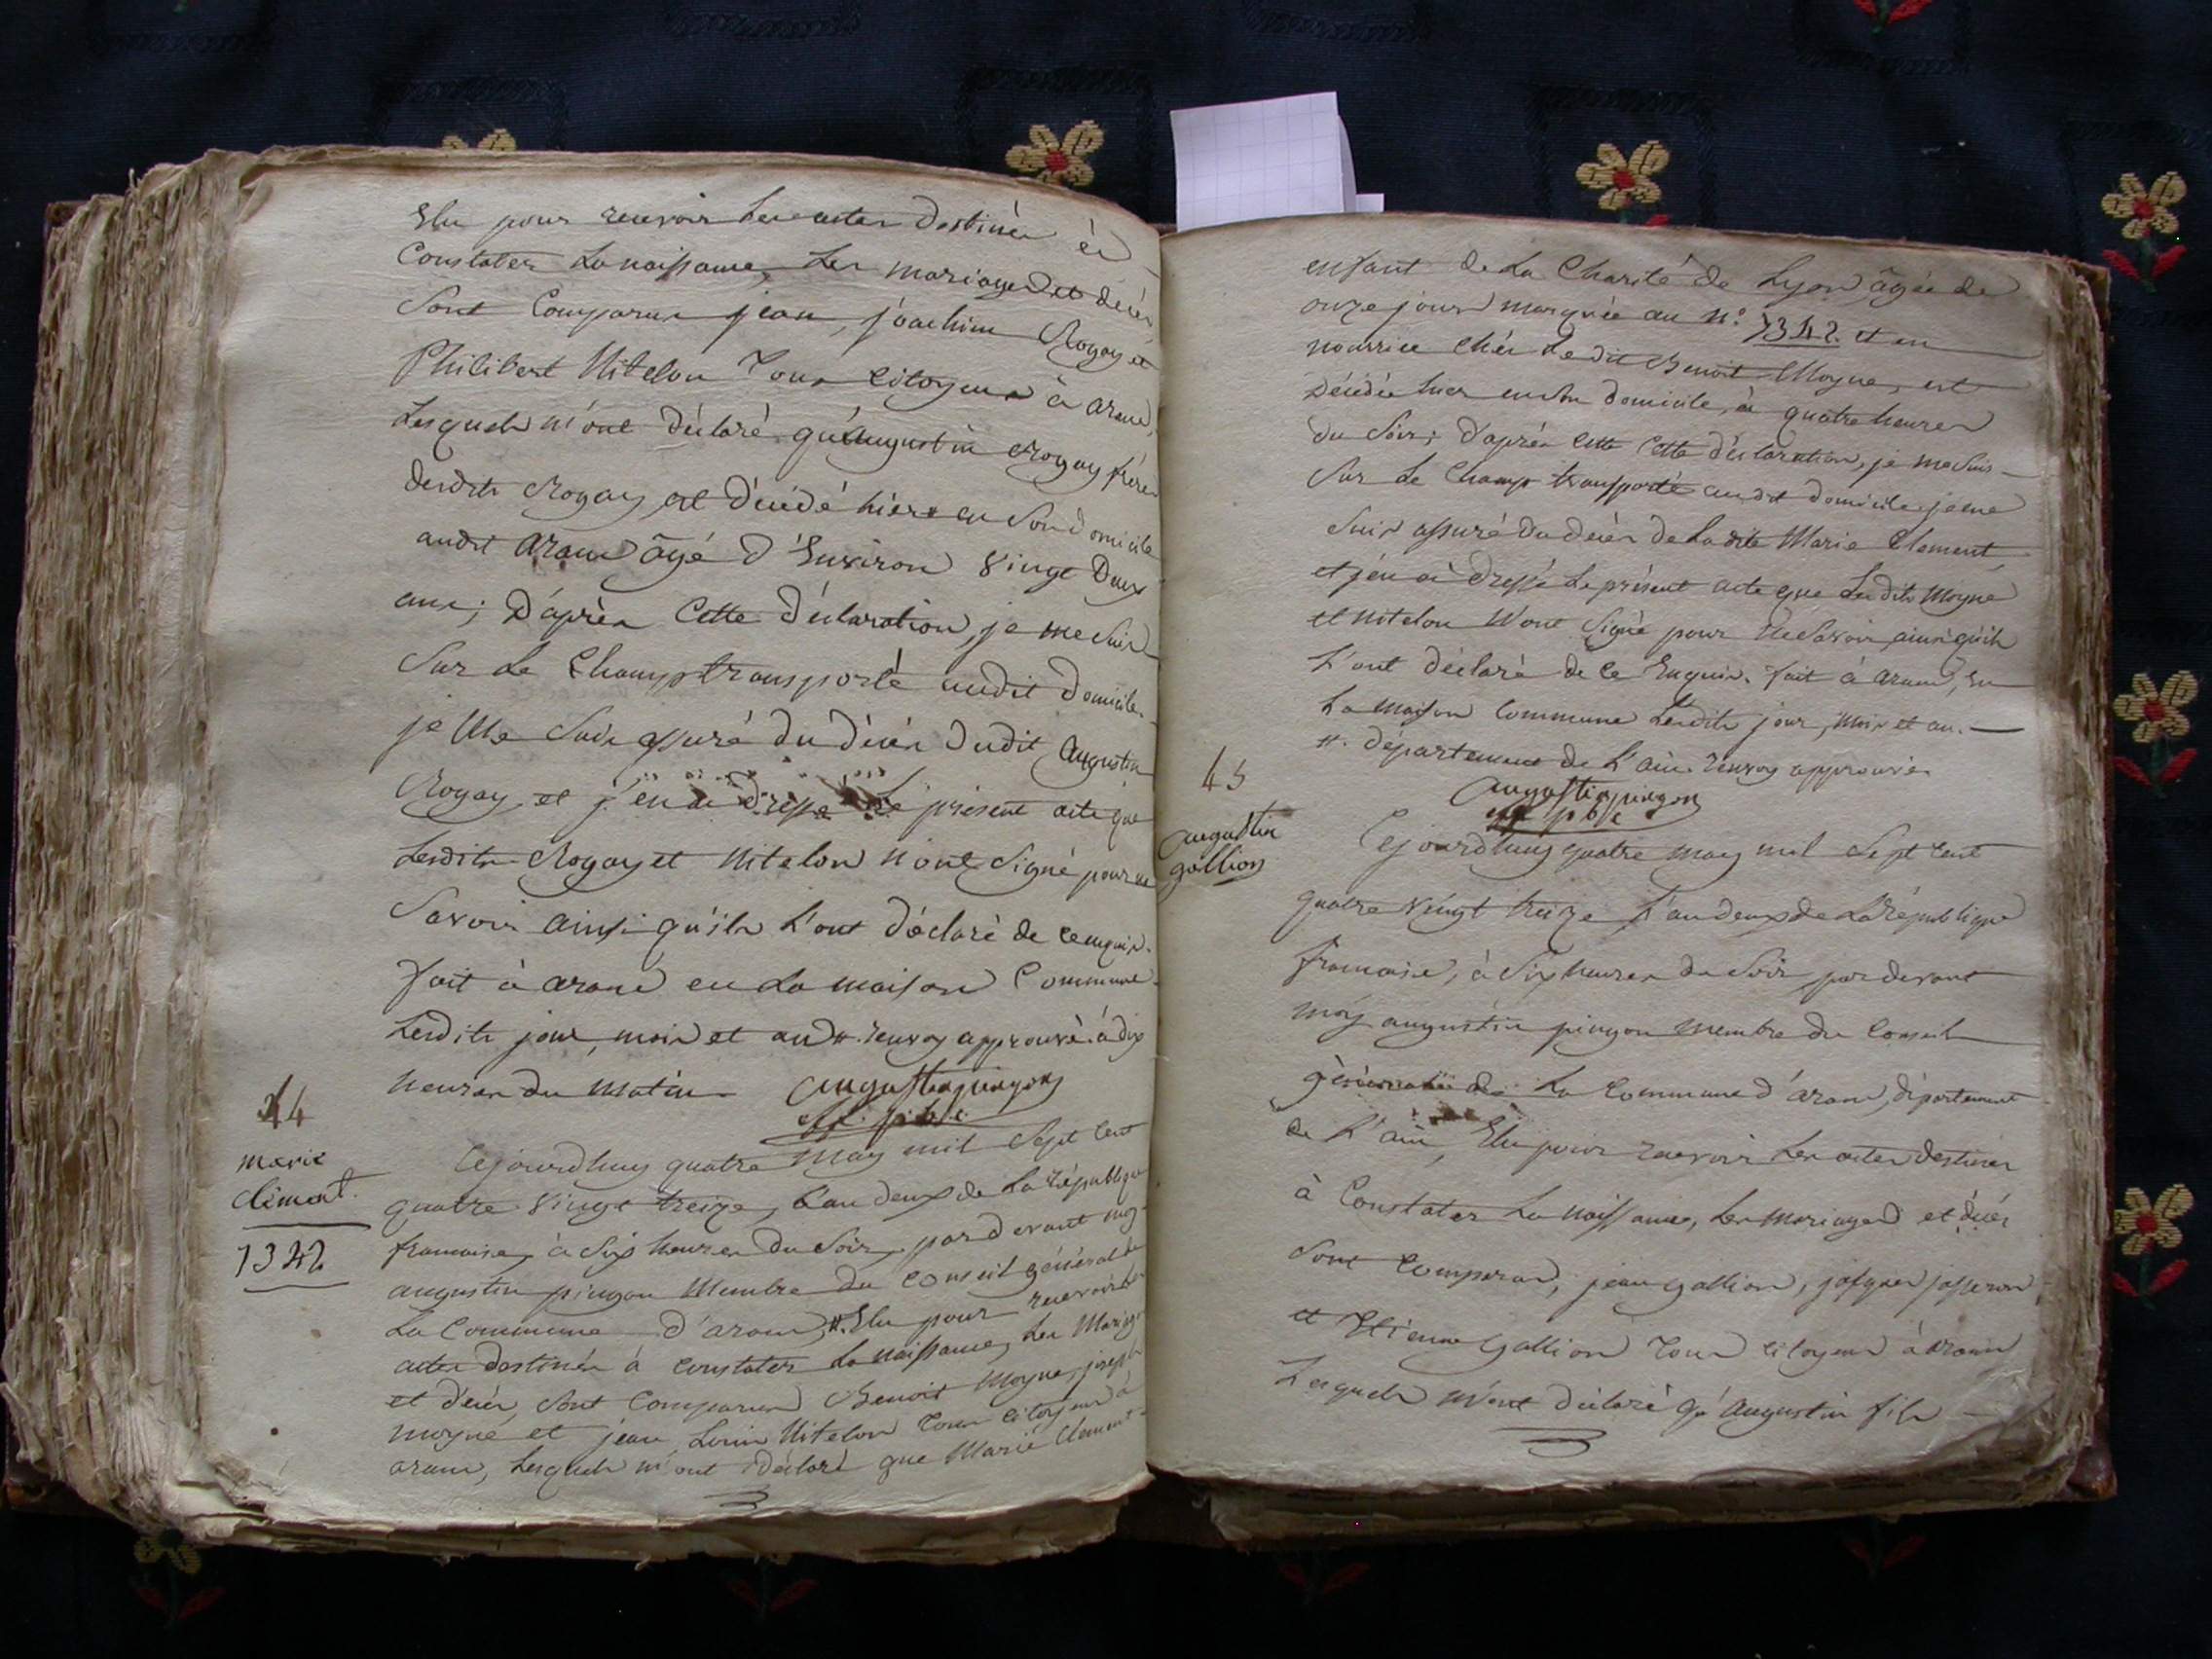 Elu pour recevoir les actes destinés à
Constater la naissance, les mariages et décès,
Sont Comparus jean, joachim Rogay et
Philibert Nitelon Tous Citoyens à aranc,
Lesquels m'ont déclaré qu'augustin Rogay frère
desdits Rogay, est décédé hier en son domicile
audit aranc âgé d'Environ Vingt Deux
ans; D'après Cette déclaration, je me suis
Sur le Champ transporté audit domicile.
je Me Suis assuré du décès dudit augustin
Rogay, et j'en ai dressé Le présent acte que
Lesdits Rogay et Nitelon n'ont Signé pour ne
Savoir ainsi qu'ils l'ont déclaré de ce enquis.
fait à aranc en la maison Commune
Lesdits jour, mois et an #. renvoy approuvé. à dix
heures du matin. augustin pingon
off. pblc.
44
marie
clément.
1342
Cejourdhuy quatre May mil Sept Cent
quatre Vingt treize, L'an deux de La République
francaise, à Six heures du Soir, pardevant moy
augustin pingon Membre du Conseil général de
La Commune d'aranc, #. Elu pour recevoir les
actes destinés à constater la naissance, les Mariages
et décès, Sont Comparus Benoit Moyne, joseph
moyne et jean, Louis Nitelon Tous citoyens à
aranc, Lesquels m'ont déclaré que Marie Clement
enfant de La Charité de Lyon, âgée de
onze jours marquée au n.º 1342. et en
nourrice chés Ledit Benoit Moyne, est
Décédée hier en son domicile, à quatre heures
du Soir; d'après cette cette déclaration, je me suis
Sur le Champ transporté audit domicile je me
Suis assuré du décès de Ladite Marie Clement
et j'en ai dressé Le présent acte que Lesdits Moyne
et Nitelon N'ont Signé pour ne Savoir, ainsi qu'ils
L'ont déclaré de ce Enquis. fait à aranc, En
La maison Commune Lesdits jour, mois et an.
#. département de L'ain. renvoy approuvé.
augustin pingon
off pblc
45
augustin
gallion
Cejourdhuy quatre may mil Sept Cent
quatre Vingt treize L'an deux de La république
francaise, à Six heures du Soir, pardevant
moy augustin pingon membre du Conseil
général de La Commune d'aranc, département
de L'ain, Elu pour recevoir les actes destinés
à Constater La naissance, les mariages et décès
Sont Comparus, jean gallion, jacques josseron,
et Etienne gallion Tous citoyens à aranc
Lesquels m'ont déclaré qu'augustin fils